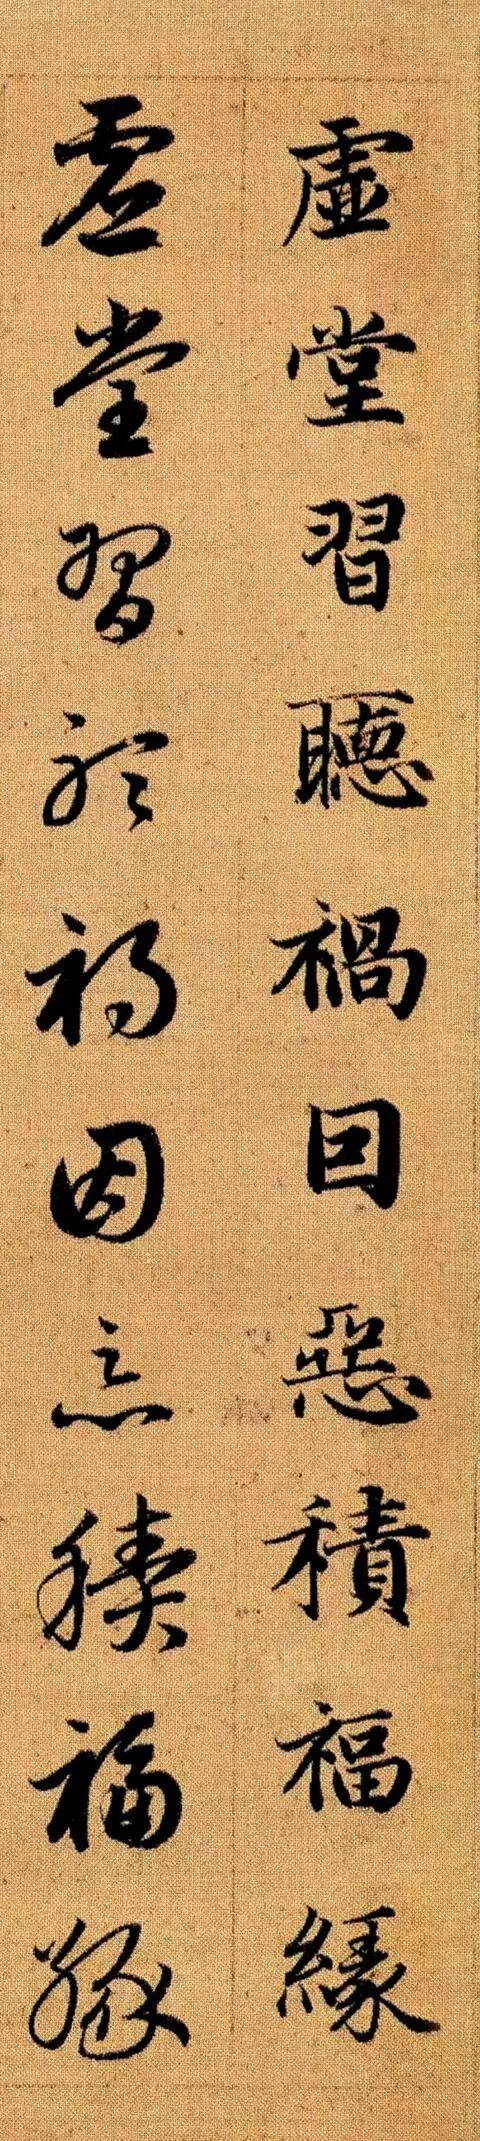 虛堂習聽禍因惡積福緣
虛堂習聽禍因惡積福緣